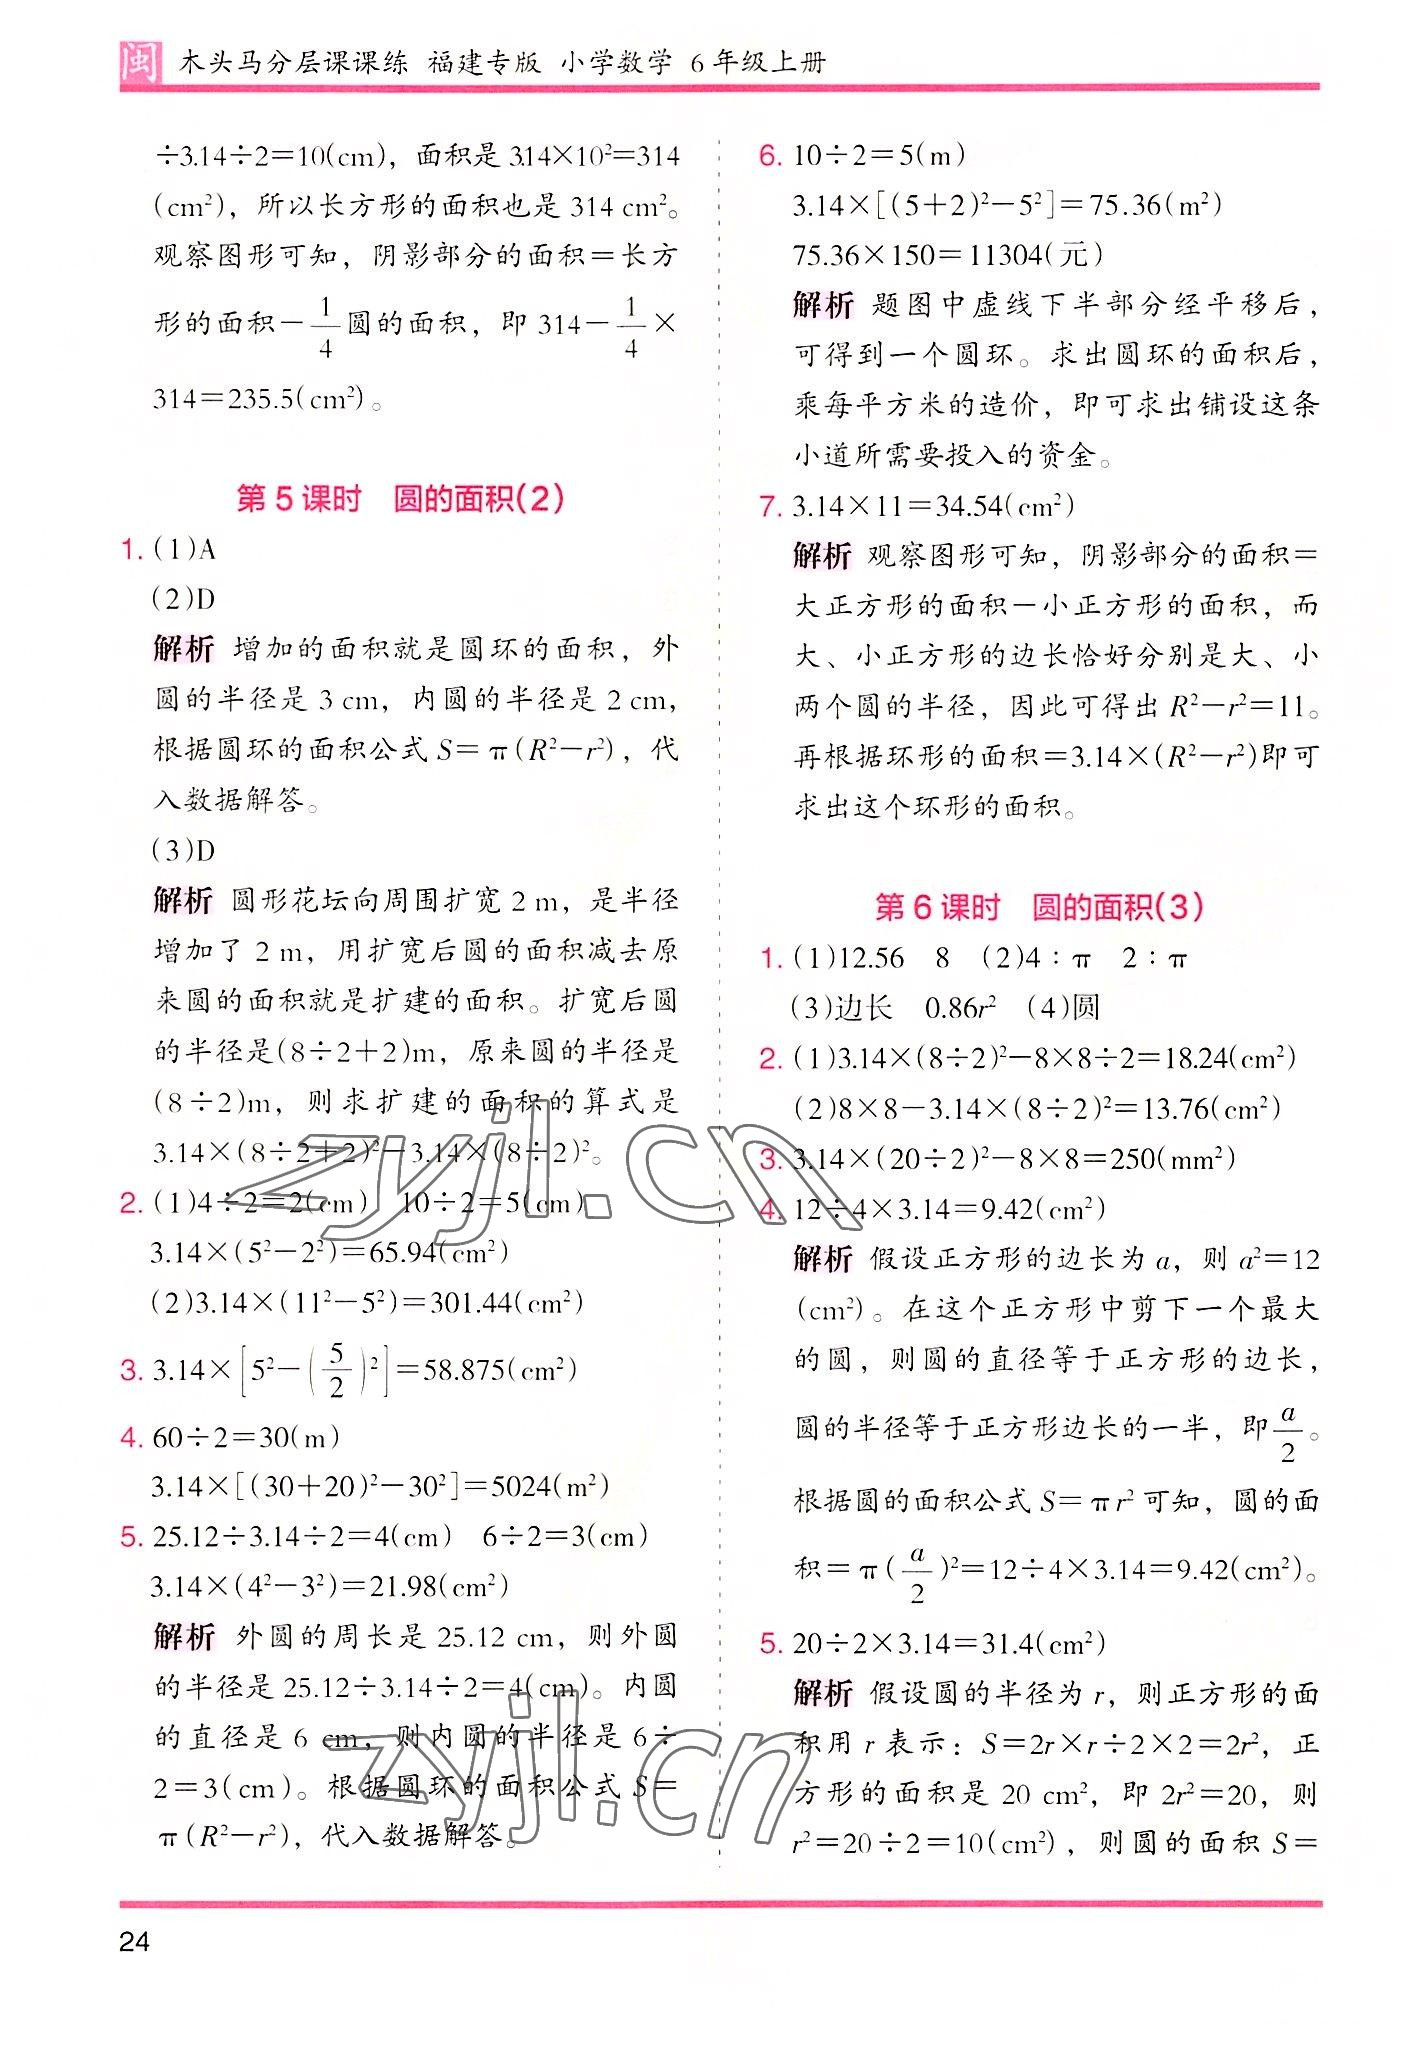 闽 木头马分层课课练 福建专版 小学数学 6年级上册
÷3.14÷2=10(cm)，面积是3.14×10²=314
(cm²)，所以长方形的面积也是 314 cm²。
观察图形可知，阴影部分的面积=长方
形的面积-1/4圆的面积，即 314-1/4×
314=235.5(cm²)。
第 5 课时 圆的面积(2)
1. (1)A
(2)D
解析 增加的面积就是圆环的面积，外
圆的半径是 3 cm，内圆的半径是 2 cm，
根据圆环的面积公式 S=π(R²-r²)，代
入数据解答。
(3)D
解析 圆形花坛向周围扩宽 2 m，是半径
增加了 2 m，用扩宽后圆的面积减去原
来圆的面积就是扩建的面积。扩宽后圆
的半径是(8÷2+2)m，原来圆的半径是
(8÷2)m，则求扩建的面积的算式是
3.14×(8÷2+2)²-3.14×(8÷2)²。
2. (1)4÷2=2(cm) 10÷2=5(cm)
3.14×(5²-2²)=65.94(cm²)
(2)3.14×(11²-5²)=301.44(cm²)
3. 3.14×[5²-(5/2)²]=58.875(cm²)
4. 60÷2=30(m)
3.14×[(30+20)²-30²]=5024(m²)
5. 25.12÷3.14÷2=4(cm) 6÷2=3(cm)
3.14×(4²-3²)=21.98(cm²)
解析 外圆的周长是 25.12 cm，则外圆
的半径是 25.12÷3.14÷2=4(cm)。内圆
的直径是 6 cm，则内圆的半径是 6÷
2=3(cm)。根据圆环的面积公式 S=
π(R²-r²)，代入数据解答。
6. 10÷2=5(m)
3.14×[(5+2)²-5²]=75.36(m²)
75.36×150=11304(元)
解析 题图中虚线下半部分经平移后，
可得到一个圆环。求出圆环的面积后，
乘每平方米的造价，即可求出铺设这条
小道所需要投入的资金。
7. 3.14×11=34.54(cm²)
解析 观察图形可知，阴影部分的面积=
大正方形的面积-小正方形的面积，而
大、小正方形的边长恰好分别是大、小
两个圆的半径，因此可得出 R²-r²=11。
再根据环形的面积=3.14×(R²-r²)即可
求出这个环形的面积。
第 6 课时 圆的面积(3)
1. (1)12.56 8 (2)4∶π 2∶π
(3)边长 0.86r² (4)圆
2. (1)3.14×(8÷2)²-8×8÷2=18.24(cm²)
(2)8×8-3.14×(8÷2)²=13.76(cm²)
3. 3.14×(20÷2)²-8×8=250(mm²)
4. 12÷4×3.14=9.42(cm²)
解析 假设正方形的边长为 a，则 a²=12
(cm²)。在这个正方形中剪下一个最大
的圆，则圆的直径等于正方形的边长，
圆的半径等于正方形边长的一半，即a/2。
根据圆的面积公式 S=πr²可知，圆的面
积=π(a/2)²=12÷4×3.14=9.42(cm²)。
5. 20÷2×3.14=31.4(cm²)
解析 假设圆的半径为 r，则正方形的面
积用 r 表示：S=2r×r÷2×2=2r²，正
方形的面积是 20 cm²，即 2r²=20，则
r²=20÷2=10(cm²)，则圆的面积 S=
24
zyjl.cn
zyjl.cn